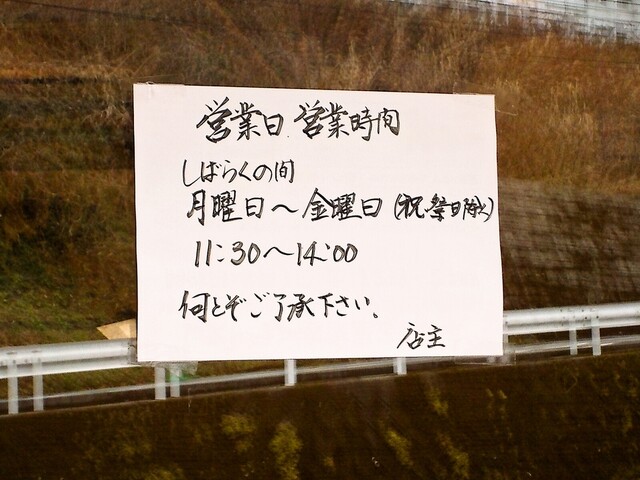 営業日 営業時間
しばらくの間
月曜日～金曜日(祝・祭日除く)
11:30～14:00
何とぞご了承下さい。
店主